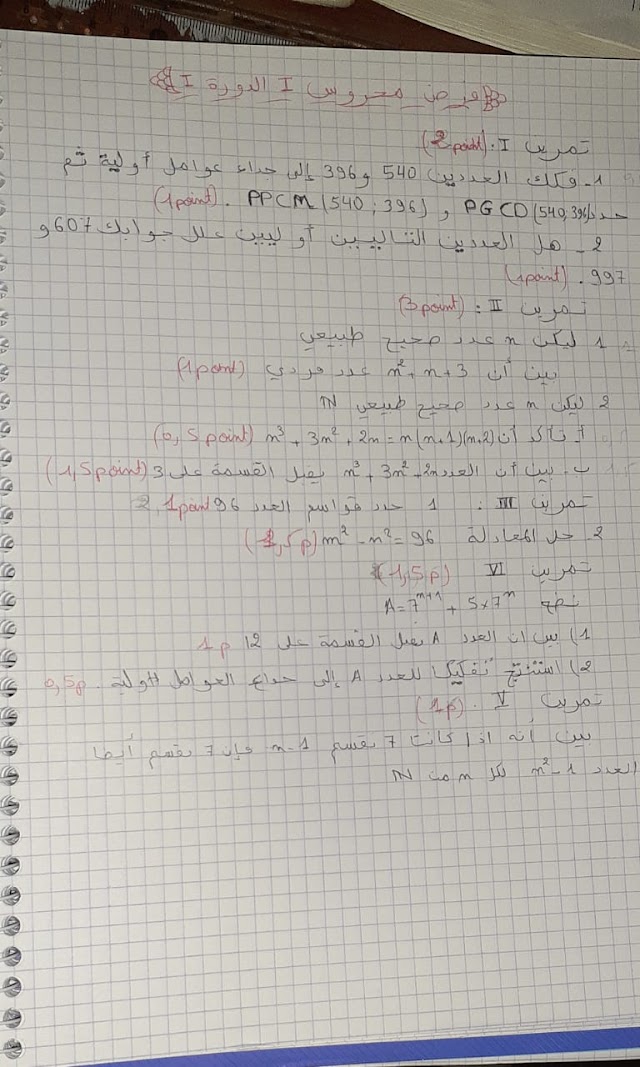 فرض محروس I الدورة I
تمرين I. (2 point)
1- فكك العددين 540 و 396 إلى جداء عوامل أولية ثم
حدد PGCD(540,396) و PPCM(540;396). (1 point)
2- هل العددين التاليين أوليين علل جوابك 607 و
997. (1 point)
تمرين II: (3 point)
1 ليكن n عدد صحيح طبيعي
بين أن n²+n+3 عدد فردي (1 point)
2 ليكن n عدد صحيح طبيعي ℕ
أ- تأكد أن n³+3n²+2n=n(n+1)(n+2) (0,5 point)
ب- بين أن العدد n³+3n²+2n يقبل القسمة على 3 (1,5 point)
تمرين III: 1 حدد قواسم العدد 96 1 point
2- حل المعادلة m²-n²=96 (1,5 p)
تمرين VI (1,5 p)
نضع A=7ⁿ⁺¹+5×7ⁿ
1) بين ان العدد A يقبل القسمة على 12 1 p
2) استنتج تفكيكا للعدد A إلى جداء العوامل الأولية. 0,5 p
تمرين V. (1 p)
بين أنه اذا كانت 7 تقسم n-1 فإن 7 تقسم أيضا
العدد n²-1 لكل n من ℕ